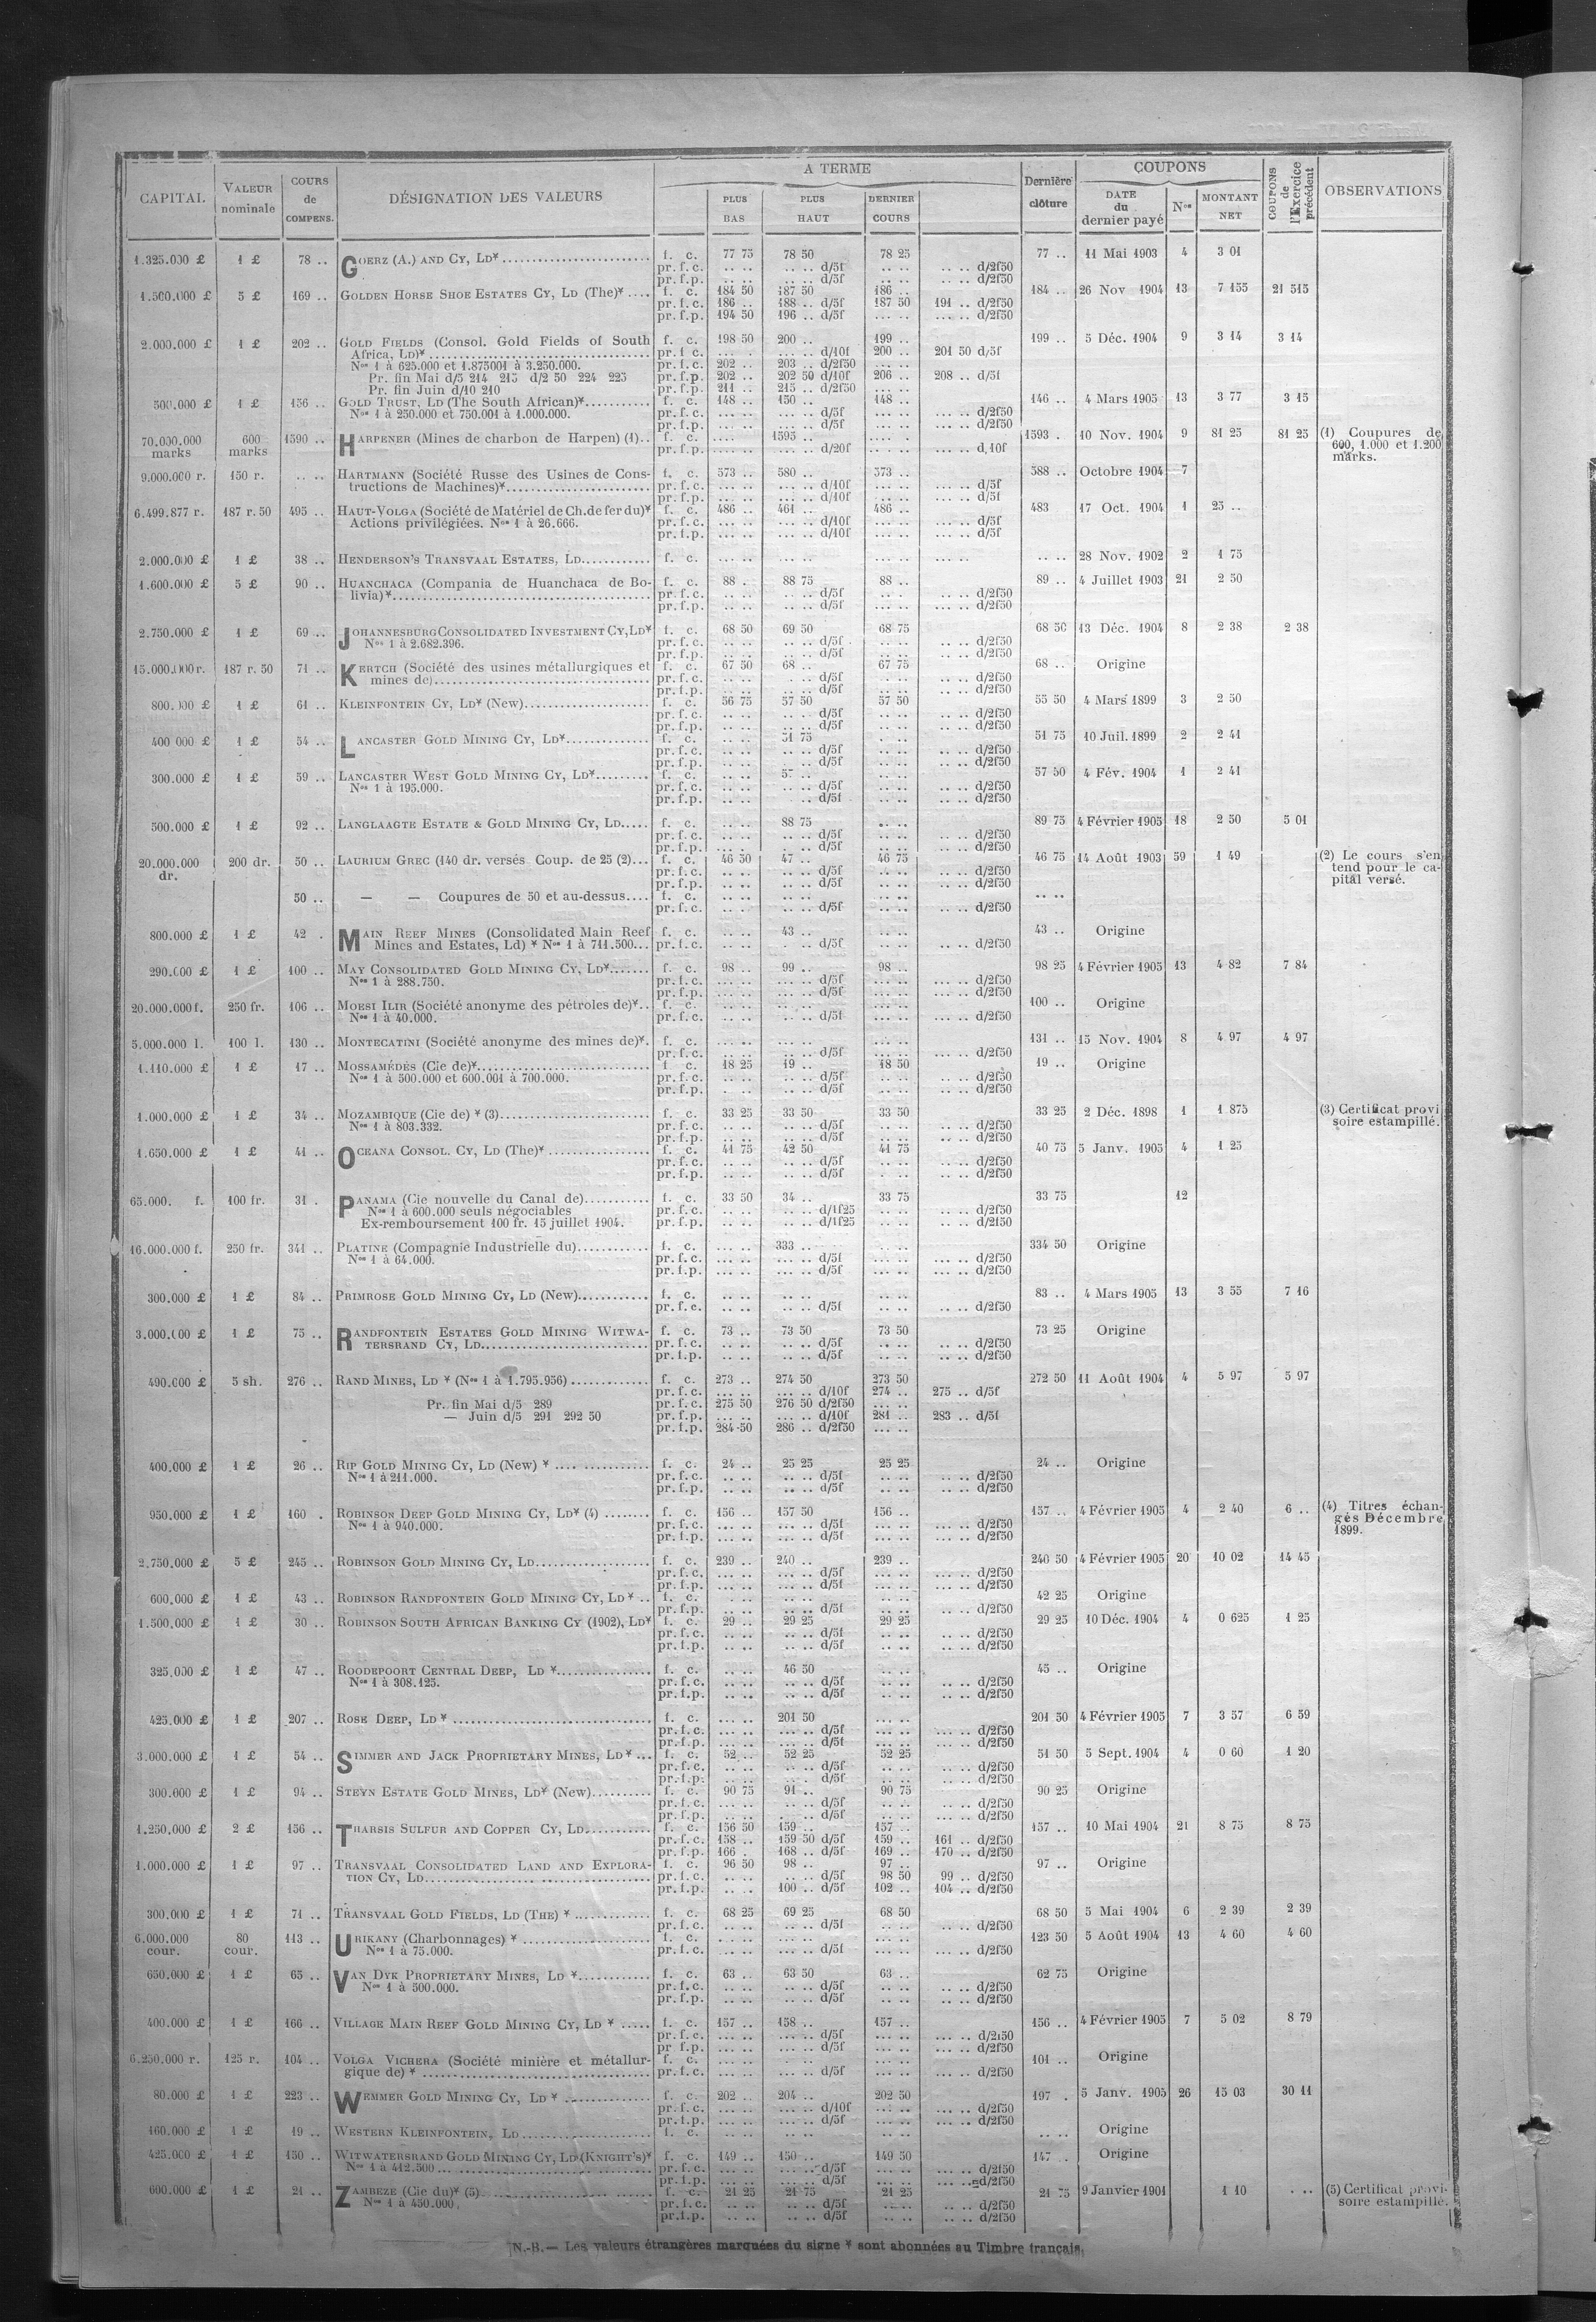 CAPITAL | VALEUR nominale | COURS de COMPENS. | DÉSIGNATION DES VALEURS | A TERME | Dernière clôture | COUPONS | COUPONS de l'Exercice précédent | OBSERVATIONS
PLUS BAS | PLUS HAUT | DERNIER COURS | DATE du dernier payé | Nos | MONTANT NET
1.325.000 £ 1 £ 78 .. GOERZ (A.) AND CY, LD* f. c. 77 75 78 50 78 25 77 .. 11 Mai 1903 4 3 01
pr. f. c. .. .. .. .. d/5f .. .. .. .. d/2f50
pr. f. p. .. .. .. .. d/5f .. .. .. .. d/2f50
1.500.000 £ 5 £ 169 .. GOLDEN HORSE SHOE ESTATES CY, LD (The)* f. c. 184 50 187 50 186 .. 184 .. 26 Nov 1904 13 7 155 21 515
pr. f. c. 186 .. 188 .. d/5f 187 50 191 .. d/2f50
pr. f. p. 194 50 196 .. d/5f .... .. .... .. d/2f50
2.000.000 £ 1 £ 202 .. GOLD FIELDS (Consol. Gold Fields of South f. c. 198 50 200 .. 199 .. 199 .. 5 Déc. 1904 9 3 14 3 14
Africa, LD)* pr. f. c. ... .. d/10f 200 .. 201 50 d/5f
Nos 1 à 625.000 et 1.875001 à 3.250.000. pr. f. c. 202 .. 203 .. d/2f50
Pr. fin Mai d/5 214 215 d/2 50 224 225 pr. f. p. 202 .. 202 50 d/10f 206 .. 208 .. d/5f
Pr. fin Juin d/10 210 pr. f. p. 211 .. 215 .. d/2f50
500.000 £ 1 £ 156 .. GOLD TRUST, LD (The South African)* f. c. 148 .. 150 .. 148 .. 146 .. 4 Mars 1905 13 3 77 3 15
Nos 1 à 250.000 et 750.001 à 1.000.000. pr. f. c. d/5f d/2f50
pr. f. p. d/5f d/2f50
70.000.000 marks 600 marks 1590 .. HARPENER (Mines de charbon de Harpen) (1).. f. c. 1595 .. 1593 . 10 Nov. 1904 9 81 25 81 25 (1) Coupures de
pr. f. p. d/20f d/10f 600, 1.000 et 1.200
marks.
9.000.000 r. 150 r. .. .. HARTMANN (Société Russe des Usines de Cons- f. c. 573 .. 580 .. 573 .. 588 .. Octobre 1904 7
tructions de Machines)* pr. f. c. d/10f d/5f
pr. f. p. d/10f d/5f
6.499.877 r. 187 r. 50 495 .. HAUT-VOLGA (Société de Matériel de Ch. de fer du)* f. c. 486 .. 461 .. 486 .. 483 17 Oct. 1904 1 25 ..
Actions privilégiées. Nos 1 à 26.666. pr. f. c. d/10f d/5f
pr. f. p. d/10f d/5f
2.000.000 £ 1 £ 38 .. HENDERSON'S TRANSVAAL ESTATES, LD f. c. .. .. 28 Nov. 1902 2 1 75
1.600.000 £ 5 £ 90 .. HUANCHACA (Compania de Huanchaca de Bo- f. c. 88 . 88 75 88 .. 89 .. 4 Juillet 1903 21 2 50
livia)* pr. f. c. d/5f d/2f50
pr. f. p. d/5f d/2f50
2.750.000 £ 1 £ 69 .. JOHANNESBURG CONSOLIDATED INVESTMENT CY, LD* f. c. 68 50 69 50 68 75 68 50 13 Déc. 1904 8 2 38 2 38
Nos 1 à 2.682.396. pr. f. c. d/5f d/2f50
pr. f. p. d/5f d/2f50
15.000.000 r. 187 r. 50 71 .. KERTCH (Société des usines métallurgiques et f. c. 67 50 68 .. 67 75 68 .. Origine
mines de) pr. f. c. d/5f d/2f50
pr. f. p. d/5f d/2f50
800.000 £ 1 £ 61 .. KLEINFONTEIN CY, LD* (New) f. c. 56 75 57 50 57 50 55 50 4 Mars 1899 3 2 50
pr. f. c. d/5f d/2f50
pr. f. p. d/5f d/2f50
400 000 £ 1 £ 54 .. LANCASTER GOLD MINING CY, LD* f. c. 51 75 51 75 10 Juil. 1899 2 2 41
pr. f. c. d/5f d/2f50
pr. f. p. d/5f d/2f50
300.000 £ 1 £ 59 .. LANCASTER WEST GOLD MINING CY, LD* f. c. 57 50 4 Fév. 1904 1 2 41
Nos 1 à 195.000. pr. f. c. d/5f d/2f50
pr. f. p. d/5f d/2f50
500.000 £ 1 £ 92 .. LANGLAAGTE ESTATE & GOLD MINING CY, LD f. c. 88 75 89 75 4 Février 1905 18 2 50 5 01
pr. f. c. d/5f d/2f50
pr. f. p. d/5f d/2f50
20.000.000 dr. 200 dr. 50 .. LAURIUM GREC (140 dr. versés Coup. de 25 (2)... f. c. 46 50 47 .. 46 75 46 75 14 Août 1903 59 1 49 (2) Le cours s'en
pr. f. c. d/5f d/2f50 tend pour le ca-
pr. f. p. d/5f d/2f50 pital versé.
50 .. — — Coupures de 50 et au-dessus f. c. .. ..
pr. f. c. d/5f d/2f50
800.000 £ 1 £ 42 . MAIN REEF MINES (Consolidated Main Reef f. c. 43 .. 43 .. Origine
Mines and Estates, Ld) * Nos 1 à 711.500... pr. f. c. d/5f d/2f50
290.000 £ 1 £ 100 .. MAY CONSOLIDATED GOLD MINING CY, LD* f. c. 98 .. 99 .. 98 .. 98 25 4 Février 1905 13 4 82 7 84
Nos 1 à 288.750. pr. f. c. d/5f d/2f50
pr. f. p. d/5f d/2f50
20.000.000 f. 250 fr. 106 .. MOESI ILIR (Société anonyme des pétroles de)* f. c. 100 .. Origine
Nos 1 à 40.000. pr. f. c. d/5f d/2f50
5.000.000 l. 100 l. 130 .. MONTECATINI (Société anonyme des mines de)*. f. c. 131 .. 15 Nov. 1904 8 4 97 4 97
pr. f. c. d/5f d/2f50
1.110.000 £ 1 £ 17 .. MOSSAMÉDÈS (Cie de)* f. c. 18 25 19 .. 18 50 19 .. Origine
Nos 1 à 500.000 et 600.001 à 700.000. pr. f. c. d/5f d/2f50
pr. f. p. d/5f d/2f50
1.000.000 £ 1 £ 34 .. MOZAMBIQUE (Cie de) * (3) f. c. 33 25 33 50 33 50 33 25 2 Déc. 1898 1 1 875 (3) Certificat provi
Nos 1 à 803.332. pr. f. c. d/5f d/2f50 soire estampillé.
pr. f. p. d/5f d/2f50
1.650.000 £ 1 £ 41 .. OCEANA CONSOL. CY, LD (The)* f. c. 41 75 42 50 41 75 40 75 5 Janv. 1905 4 1 25
pr. f. c. d/5f d/2f50
pr. f. p. d/5f d/2f50
65.000. f. 100 fr. 31 . PANAMA (Cie nouvelle du Canal de) f. c. 33 50 34 .. 33 75 33 75 12
Nos 1 à 600.000 seuls négociables pr. f. c. d/1f25 d/2f50
Ex-remboursement 100 fr. 15 juillet 1904. pr. f. p. d/1f25 d/2f50
16.000.000 f. 250 fr. 341 .. PLATINE (Compagnie Industrielle du) f. c. 333 .. 334 50 Origine
Nos 1 à 64.000. pr. f. c. d/5f d/2f50
pr. f. p. d/5f d/2f50
300.000 £ 1 £ 84 .. PRIMROSE GOLD MINING CY, LD (New) f. c. 83 .. 4 Mars 1905 13 3 55 7 16
pr. f. c. d/5f d/2f50
3.000.000 £ 1 £ 75 .. RANDFONTEIN ESTATES GOLD MINING WITWA- f. c. 73 .. 73 50 73 50 73 25 Origine
TERSRAND CY, LD pr. f. c. d/5f d/2f50
pr. f. p. d/5f d/2f50
490.000 £ 5 sh. 276 .. RAND MINES, LD * (Nos 1 à 1.795.956) f. c. 273 .. 274 50 273 50 272 50 11 Août 1904 4 5 97 5 97
pr. f. c. d/10f 274 .. 275 .. d/5f
Pr. fin Mai d/5 289 pr. f. c. 275 50 276 50 d/2f50
— Juin d/5 291 292 50 pr. f. p. d/10f 281 .. 283 .. d/5f
pr. f. p. 284 50 286 .. d/2f50
400.000 £ 1 £ 26 .. RIP GOLD MINING CY, LD (New) * f. c. 24 .. 25 25 25 25 24 .. Origine
Nos 1 à 211.000. pr. f. c. d/5f d/2f50
pr. f. p. d/5f d/2f50
950.000 £ 1 £ 160 . ROBINSON DEEP GOLD MINING CY, LD* (4) f. c. 156 .. 157 50 156 .. 157 .. 4 Février 1905 4 2 40 6 .. (4) Titres échan-
Nos 1 à 940.000. pr. f. c. d/5f d/2f50 gés Décembre
pr. f. p. d/5f d/2f50 1899.
2.750.000 £ 5 £ 245 .. ROBINSON GOLD MINING CY, LD f. c. 239 .. 240 .. 239 .. 240 50 4 Février 1905 20 10 02 14 45
pr. f. c. d/5f d/2f50
pr. f. p. d/5f d/2f50
600.000 £ 1 £ 43 .. ROBINSON RANDFONTEIN GOLD MINING CY, LD* .. f. c. 42 25 Origine
pr. f. p. d/5f d/2f50
1.500.000 £ 1 £ 30 .. ROBINSON SOUTH AFRICAN BANKING CY (1902), LD* f. c. 29 .. 29 25 29 25 29 25 10 Déc. 1904 4 0 625 1 25
pr. f. c. d/5f d/2f50
pr. f. p. d/5f d/2f50
325.000 £ 1 £ 47 .. ROODEPOORT CENTRAL DEEP, LD * f. c. 46 50 45 .. Origine
Nos 1 à 308.125. pr. f. c. d/5f d/2f50
pr. f. p. d/5f d/2f50
425.000 £ 1 £ 207 .. ROSE DEEP, LD* f. c. 201 50 201 50 4 Février 1905 7 3 57 6 59
pr. f. c. d/5f d/2f50
pr. f. p. d/5f d/2f50
3.000.000 £ 1 £ 54 .. SIMMER AND JACK PROPRIETARY MINES, LD* f. c. 52 .. 52 25 52 25 51 50 5 Sept. 1904 4 0 60 1 20
pr. f. c. d/5f d/2f50
pr. f. p. d/5f d/2f50
300.000 £ 1 £ 94 .. STEYN ESTATE GOLD MINES, LD* (New) f. c. 90 75 91 .. 90 75 90 25 Origine
pr. f. c. d/5f d/2f50
pr. f. p. d/5f d/2f50
1.250.000 £ 2 £ 156 .. THARSIS SULFUR AND COPPER CY, LD f. c. 156 50 159 .. 157 .. 157 .. 10 Mai 1904 21 8 75 8 75
pr. f. c. 158 .. 159 50 d/5f 159 .. 161 .. d/2f50
pr. f. p. 166 . 168 .. d/5f 169 .. 170 .. d/2f50
1.000.000 £ 1 £ 97 .. TRANSVAAL CONSOLIDATED LAND AND EXPLORA- f. c. 96 50 98 .. 97 .. 97 .. Origine
TION CY, LD pr. f. c. d/5f 98 50 99 .. d/2f50
pr. f. p. 100 .. d/5f 102 .. 104 .. d/2f50
300.000 £ 1 £ 71 .. TRANSVAAL GOLD FIELDS, LD (THE) * f. c. 68 25 69 25 68 50 68 50 5 Mai 1904 6 2 39 2 39
pr. f. c. d/5f d/2f50
6.000.000 cour. 80 cour. 113 .. URIKANY (Charbonnages) * f. c. 123 50 5 Août 1904 13 4 60 4 60
Nos 1 à 75.000. pr. f. c. d/5f d/2f50
650.000 £ 1 £ 65 .. VAN DYK PROPRIETARY MINES, LD * f. c. 63 .. 63 50 63 .. 62 75 Origine
Nos 1 à 500.000. pr. f. c. d/5f d/2f50
pr. f. p. d/5f d/2f50
400.000 £ 1 £ 166 .. VILLAGE MAIN REEF GOLD MINING CY, LD * f. c. 157 .. 158 .. 157 .. 156 .. 4 Février 1905 7 5 02 8 79
pr. f. c. d/5f d/2f50
pr f. p. d/5f d/2f50
6.250.000 r. 125 r. 104 .. VOLGA VICHERA (Société minière et métallur- f. c. 101 .. Origine
gique de) * pr. f. c. d/5f d/2f50
80.000 £ 1 £ 223 .. WEMMER GOLD MINING CY, LD * f. c. 202 .. 204 .. 202 50 197 . 5 Janv. 1905 26 15 03 30 11
pr. f. c. d/10f d/2f50
pr. f. p. d/5f d/2f50
160.000 £ 1 £ 19 .. WESTERN KLEINFONTEIN, LD f. c. .. .. Origine
425.000 £ 1 £ 150 .. WITWATERSRAND GOLD MINING CY, LD (KNIGHT'S)* f. c. 149 .. 150 .. 149 50 147 . Origine
Nos 1 à 412.500 pr. f. c. d/5f d/2f50
pr. f. p. d/5f d/2f50
600.000 £ 1 £ 21 .. ZAMBEZE (Cie du)* (5) f. c. 21 25 21 75 21 25 21 75 9 Janvier 1901 1 10 . .. (5) Certificat provi-
Nos 1 à 450.000. pr. f. c. d/5f d/2f50 soire estampillé.
pr. f. p. d/5f d/2f50
N.-B.— Les valeurs étrangères marquées du signe * sont abonnées au Timbre français.